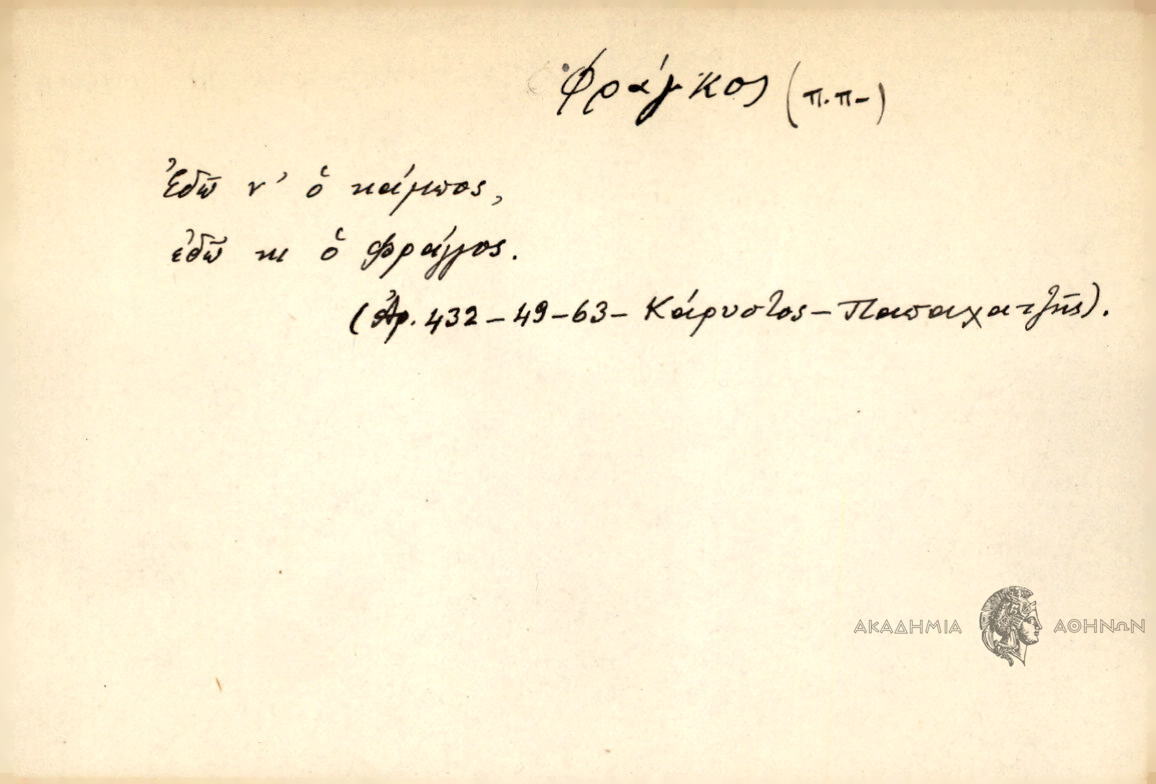 Φράγκος (π.π-)
Ἐδῶ ν' ὁ κάμπος,
ἐδῶ κι ὁ Φράγγος.
(Ἀρ. 432-49-63- Κάρυστος-Παπαχατζῆς).
ΑΚΑΔΗΜΙΑ ΑΘΗΝΩΝ